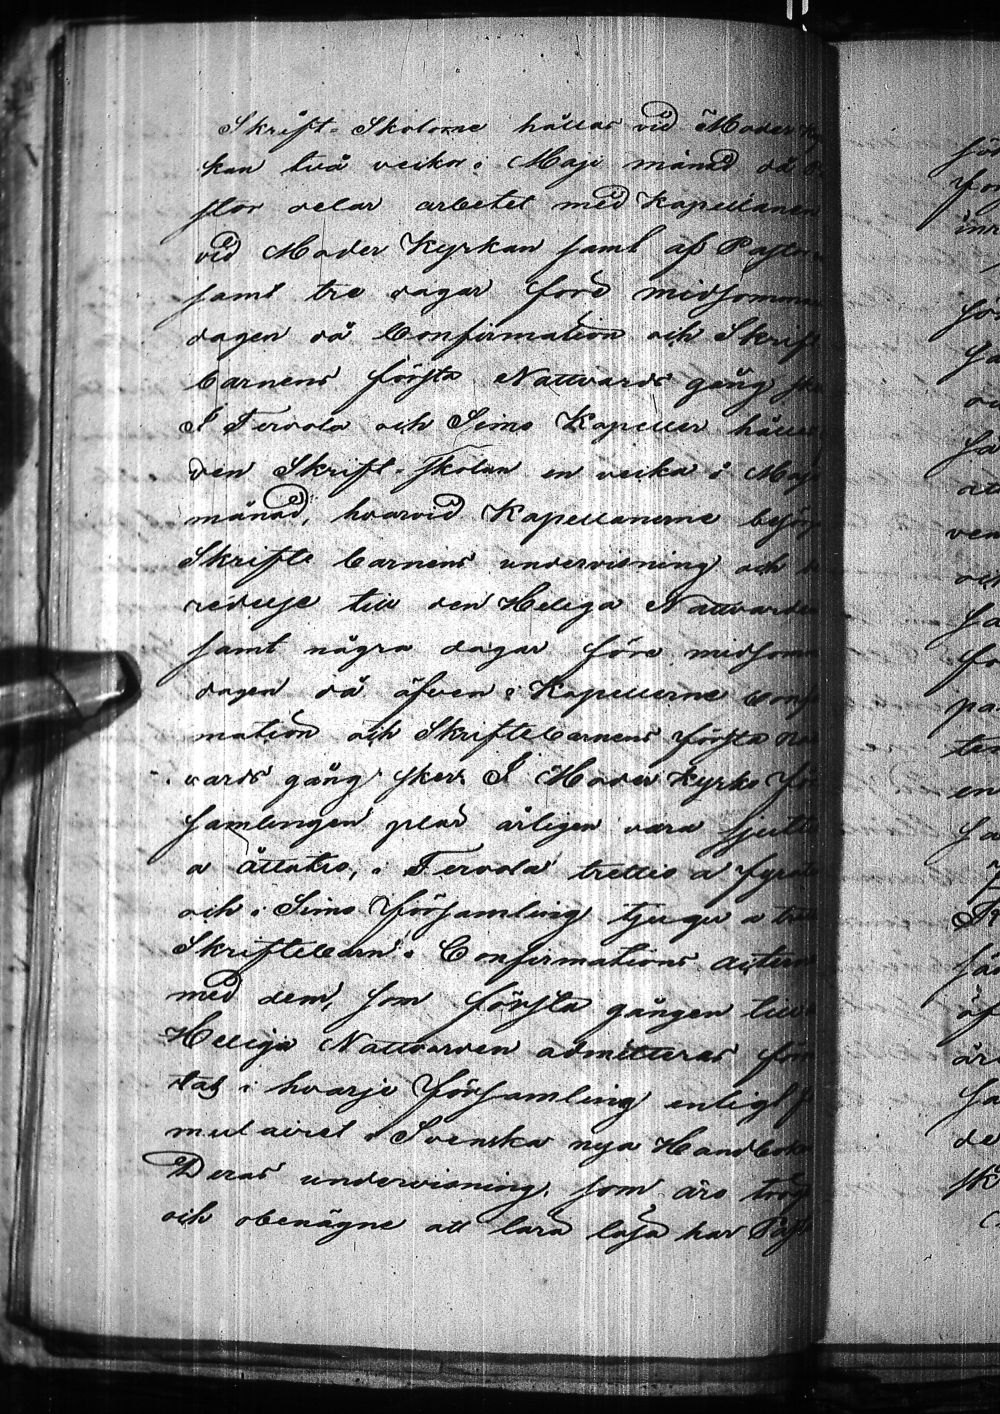 Skrift-Skolorne hållas vid Moder Ky
kan två veckor i Maji månad då
stor delar arbetet med Kapellanen
vid Moder Kyrkan samt af Pastor
samt tre dagar före midsommar
dagen då Confirmation och Skrift
barnens första Nattvards gång
I Tervola och Simo Kapeller hålles
den Skrift-skolan en vecka i Maji
månad, hvarvid Kapellanerne besörj
Skrifte barnens undervisning och
redelse till den Heliga Nattvarden
samt några dagar före midsom
dagen då äfven i Kapellerne Conf
mation och Skriftebarnens första Na
vards gång sker. I Moder Kyrko För
samlingen plär årligen vara sjutti
a åttatio, i Tervola trettio a fyrati
och i Simo Församling tjugu a tre
Skriftebarn. Confirmations acten
med dem, som första gången till
Heliga Nattvarden admitteras för
tas i hvarje Församling enligt
mulairet i Svenska nya Handbok
Deras undervisning, som äro trög
och obenägne att lära läsa har Past